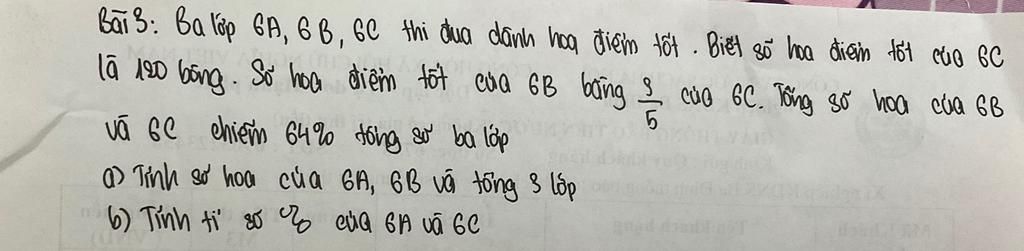 Bài 3: Ba lớp 6A, 6B, 6C thi đua dành hoa điểm tốt. Biết số hoa điểm tốt của 6C
là 120 bông. Số hoa điểm tốt của 6B bằng 3/5 của 6C. Tổng số hoa của 6B
và 6C chiếm 64% tổng số ba lớp
a) Tính số hoa của 6A, 6B và tổng 3 lớp
b) Tính tỉ số % của 6A và 6C